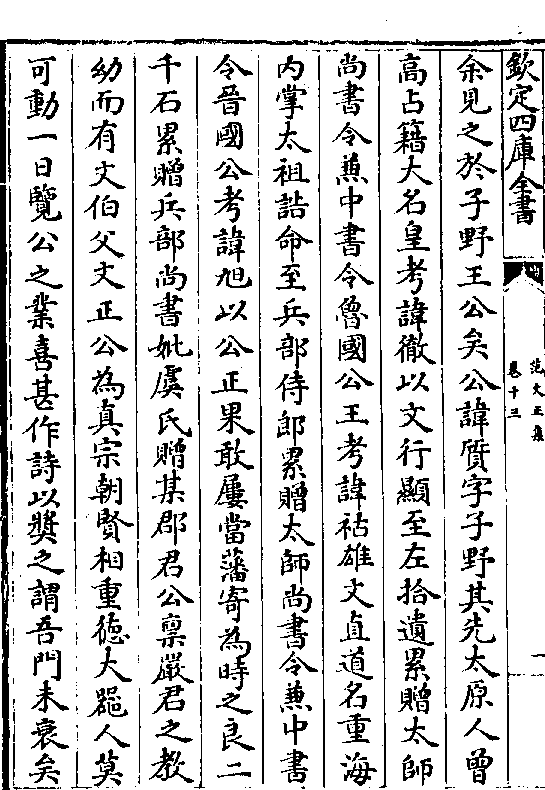 欽定四庫全書
范文正集
卷十三
一
余見之於子野王公矣公諱質字子野其先太原人曾
高占籍大名皇考諱徹以文行顯至左拾遺累贈太師
尚書令兼中書令魯國公王考諱祜雄文直道名重海
内掌太祖誥命至兵部侍郎累贈太師尚書令兼中書
令晉國公考諱旭以公正果敢屢當藩寄為時之良二
千石累贈兵部尚書妣虞氏贈某郡君公禀嚴君之教
幼而有文伯父文正公為真宗朝賢相重德大噐人莫
可動一日覽公之業喜甚作詩以奬之謂吾門未衰矣